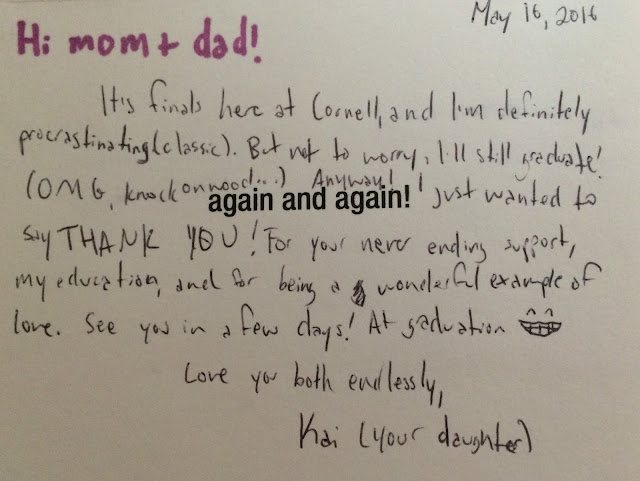 May 16, 2016
Hi mom + dad!
It's finals here at Cornell, and I'm definitely
procrastinating (classic). But not to worry, I'll still graduate!
(OMG, knock on wood...) Anyway! I just wanted to
again and again!
say THANK YOU! For your never ending support,
my education, and for being a wonderful example of
love. See you in a few days! At graduation
Love you both endlessly,
Kai (your daughter)